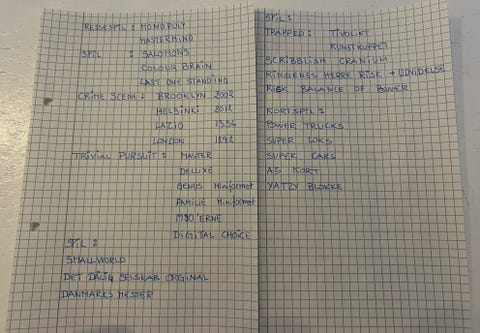 REJSESPIL : MONOPOLY
MASTERMIND
SPIL : SALOMONS
COLOUR BRAIN
LAST ONE STANDING
CRIME SCENE : BROOKLYN 2002
HELSINKI 2012
LAZIO 1996
LONDON 1892
TRIVIAL PURSUIT : MASTER
DELUXE
GENUS Miniformat
FAMILIE Miniformat
1980'ERNE
DIGITAL CHOICE
SPIL :
SMALLWORLD
DET DÅLIG SELSKAB ORGINAL
DANMARKS MESTER
SPIL :
TRAPPED : TIVOLIET
KUNSTKUPPET
SCRIBBLISH CRANIUM
RINGENES HERRE RISK + UDVIDELSE
RISK BALANCE OF POWER
KORTSPIL :
POWER TRUCKS
SUPER LOKS
SUPER CARS
A5 KORT
YATZY BLOKKE